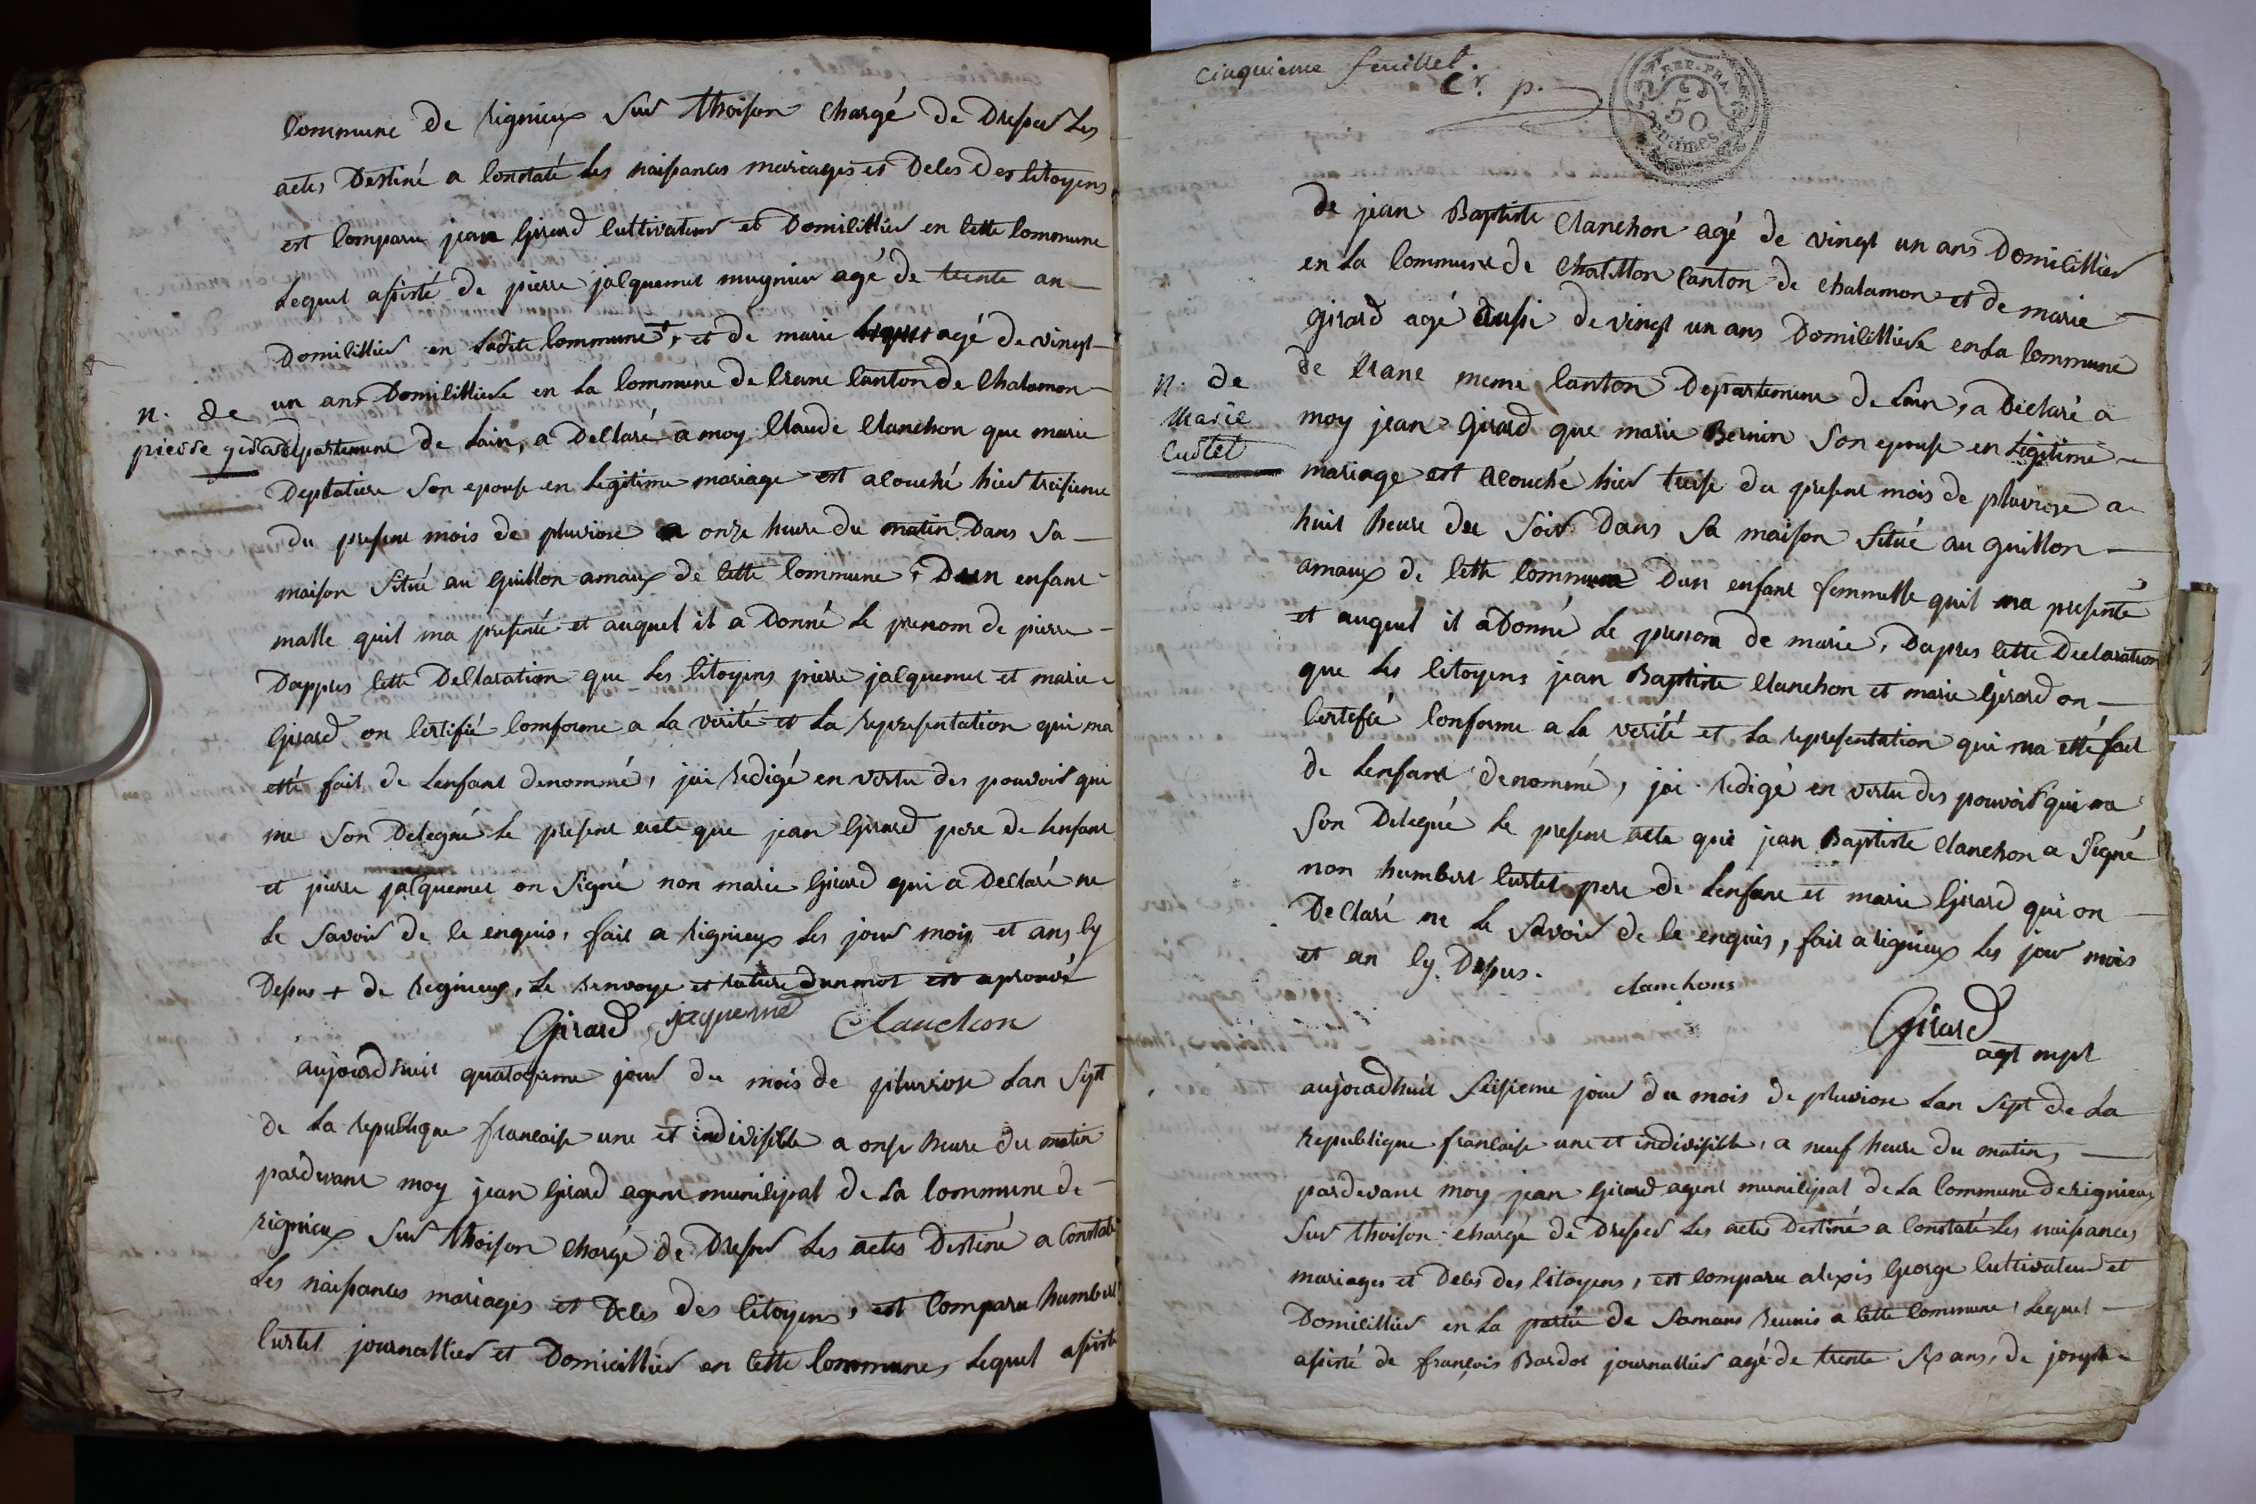 Commune de rignieux sur thoison chargé de dresser les
actes destiné a constaté les naissances mariages et deces des citoyens
est comparu jean girard cultivateur et domicillier en cette commune
lequel assisté de pierre jacquemet mugnier agé de trente an
domicillier en ladite commune +, et de marie agé de vingt
un ans domicilliere en la commune de crane canton de chalamon
n. de
pierre girard
departement de lain, a declaré a moy claude clanchon que marie
deplatiere son epouse en legitime mariage est acouché hier treisieme
du present mois de pluviose a onze heure du matin dans sa
maison situé au guillon amaux de cette commune, dun enfant
malle quil ma presenté et auquel il a donné le prenom de pierre
dappres cette declaration que les citoyens pierre jacquemet et marie
girard on certifié comforme a la verité et la representation qui ma
etté fait de lenfant denommé, jai redigé en vertu des pouvoir qui
me son delegué le present acte que jean girard pere de lenfant
et pierre jacquemet on signé non marie girard qui a declaré ne
le savoir de ce enquis, fait a rignieux les jour mois et ans cy
dessus + de regnieux, le renvoye et rature dun mot est aprouvé
Girard jaquemed Clanchon
aujourdhuit quatorsieme jour du mois de pluviose lan sept
de la republique francaise une et indivisible a onse heure du matin
pardevant moy jean girard agent municipal de la commune de
rignieux sur thoison chargé de dresser les actes destiné a constaté
les naissances mariages et deces des citoyens, est comparu humbert
curtet journallier et domicillier en cette commune, lequel assisté
cinquieme feuillet.
C. p.
REP. FRA.
50
centimes
de jean Baptiste clanchon agé de vingt un ans domicillier
en la commune de chatillon canton de chalamon et de marie
girard agé aussi de vingt un ans domicilliere en la commune
n. de
Marie
Curtet
de crane meme canton departement de lain, a declaré a
moy jean girard que marie Bernin son epouse en legitime
mariage est acouché hier treise du present mois de pluviose a
huit heure du soir dans sa maison situé au guillon
amaux de cette commune dun enfant femmelle quil ma presenté
et auquel il a donné le prenom de marie, dapres cette declaration
que les citoyens jean Baptiste clanchon et marie girard on
certifié conforme a la verité et la representation qui ma etté fait
de lenfant denommé, jai redigé en vertu des pouvoir qui ma
son delegué le present acte que jean Baptiste clanchon a signé
non humbert curtet pere de lenfant et marie girard qui on
declaré ne le savoir de ce enquis, fait a rignieux les jour mois
et an cy dessus.
clanchons
Girard
agt mpl
aujourdhuit seisieme jour du mois de pluviose lan sept de la
republique francaise une et indivisible, a neuf heure du matin,
pardevant moy jean girard agent municipal de la commune de rignieux
sur thoison chargé de dresser les actes destiné a constaté les naissances
mariages et deces des citoyens, est comparu alexis george cultivateur et
domicillier en la partie de samans reunis a cette commune, lequel
assisté de françois Bardot journallier agé de trente six ans, de joseph